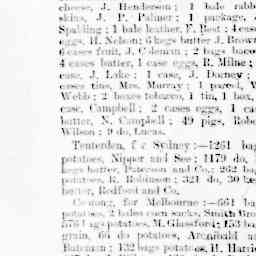 cheese, J. Henderson; 1 bale rabb
skins, J. P. Palmer; 1 package,
Spalding; 1 bale leather, F. Best; 4 cas
eggs, H. Nelson; 6 kegs butter J. Brown
6 cases fruit, J. Coleman; 2 bags baco
4 cases butter, 1 case eggs, R. Milne;
case, J. Lake; 1 case, J. Dorney;
cases tins, Mrs. Murray; 1 parcel, W
Webb; 2 boxes tobacco, 1 tin, 1 box,
case, Campbell; 2 cases eggs, 1 cas
butter, N. Campbell; 49 pigs, Robe
Wilson; 9 do, Lucas.
Tenterden, for Sydney:—1261 bag
potatoes, Nipper and See; 1179 do,
kegs butter, Paterson and Co.; 262 bag
potatoes, R. Robinson; 321 do, 30 ke
butter, Redford and Co.
for Melbourne:—661 ba
potatoes, 2 bales corn sacks, Smith Bro
576 bags potatoes, M. Glassford; 153 ba
grain, 66 do potatoes, Archibald a
Bateman; 132 bags potatoes, H. Harri